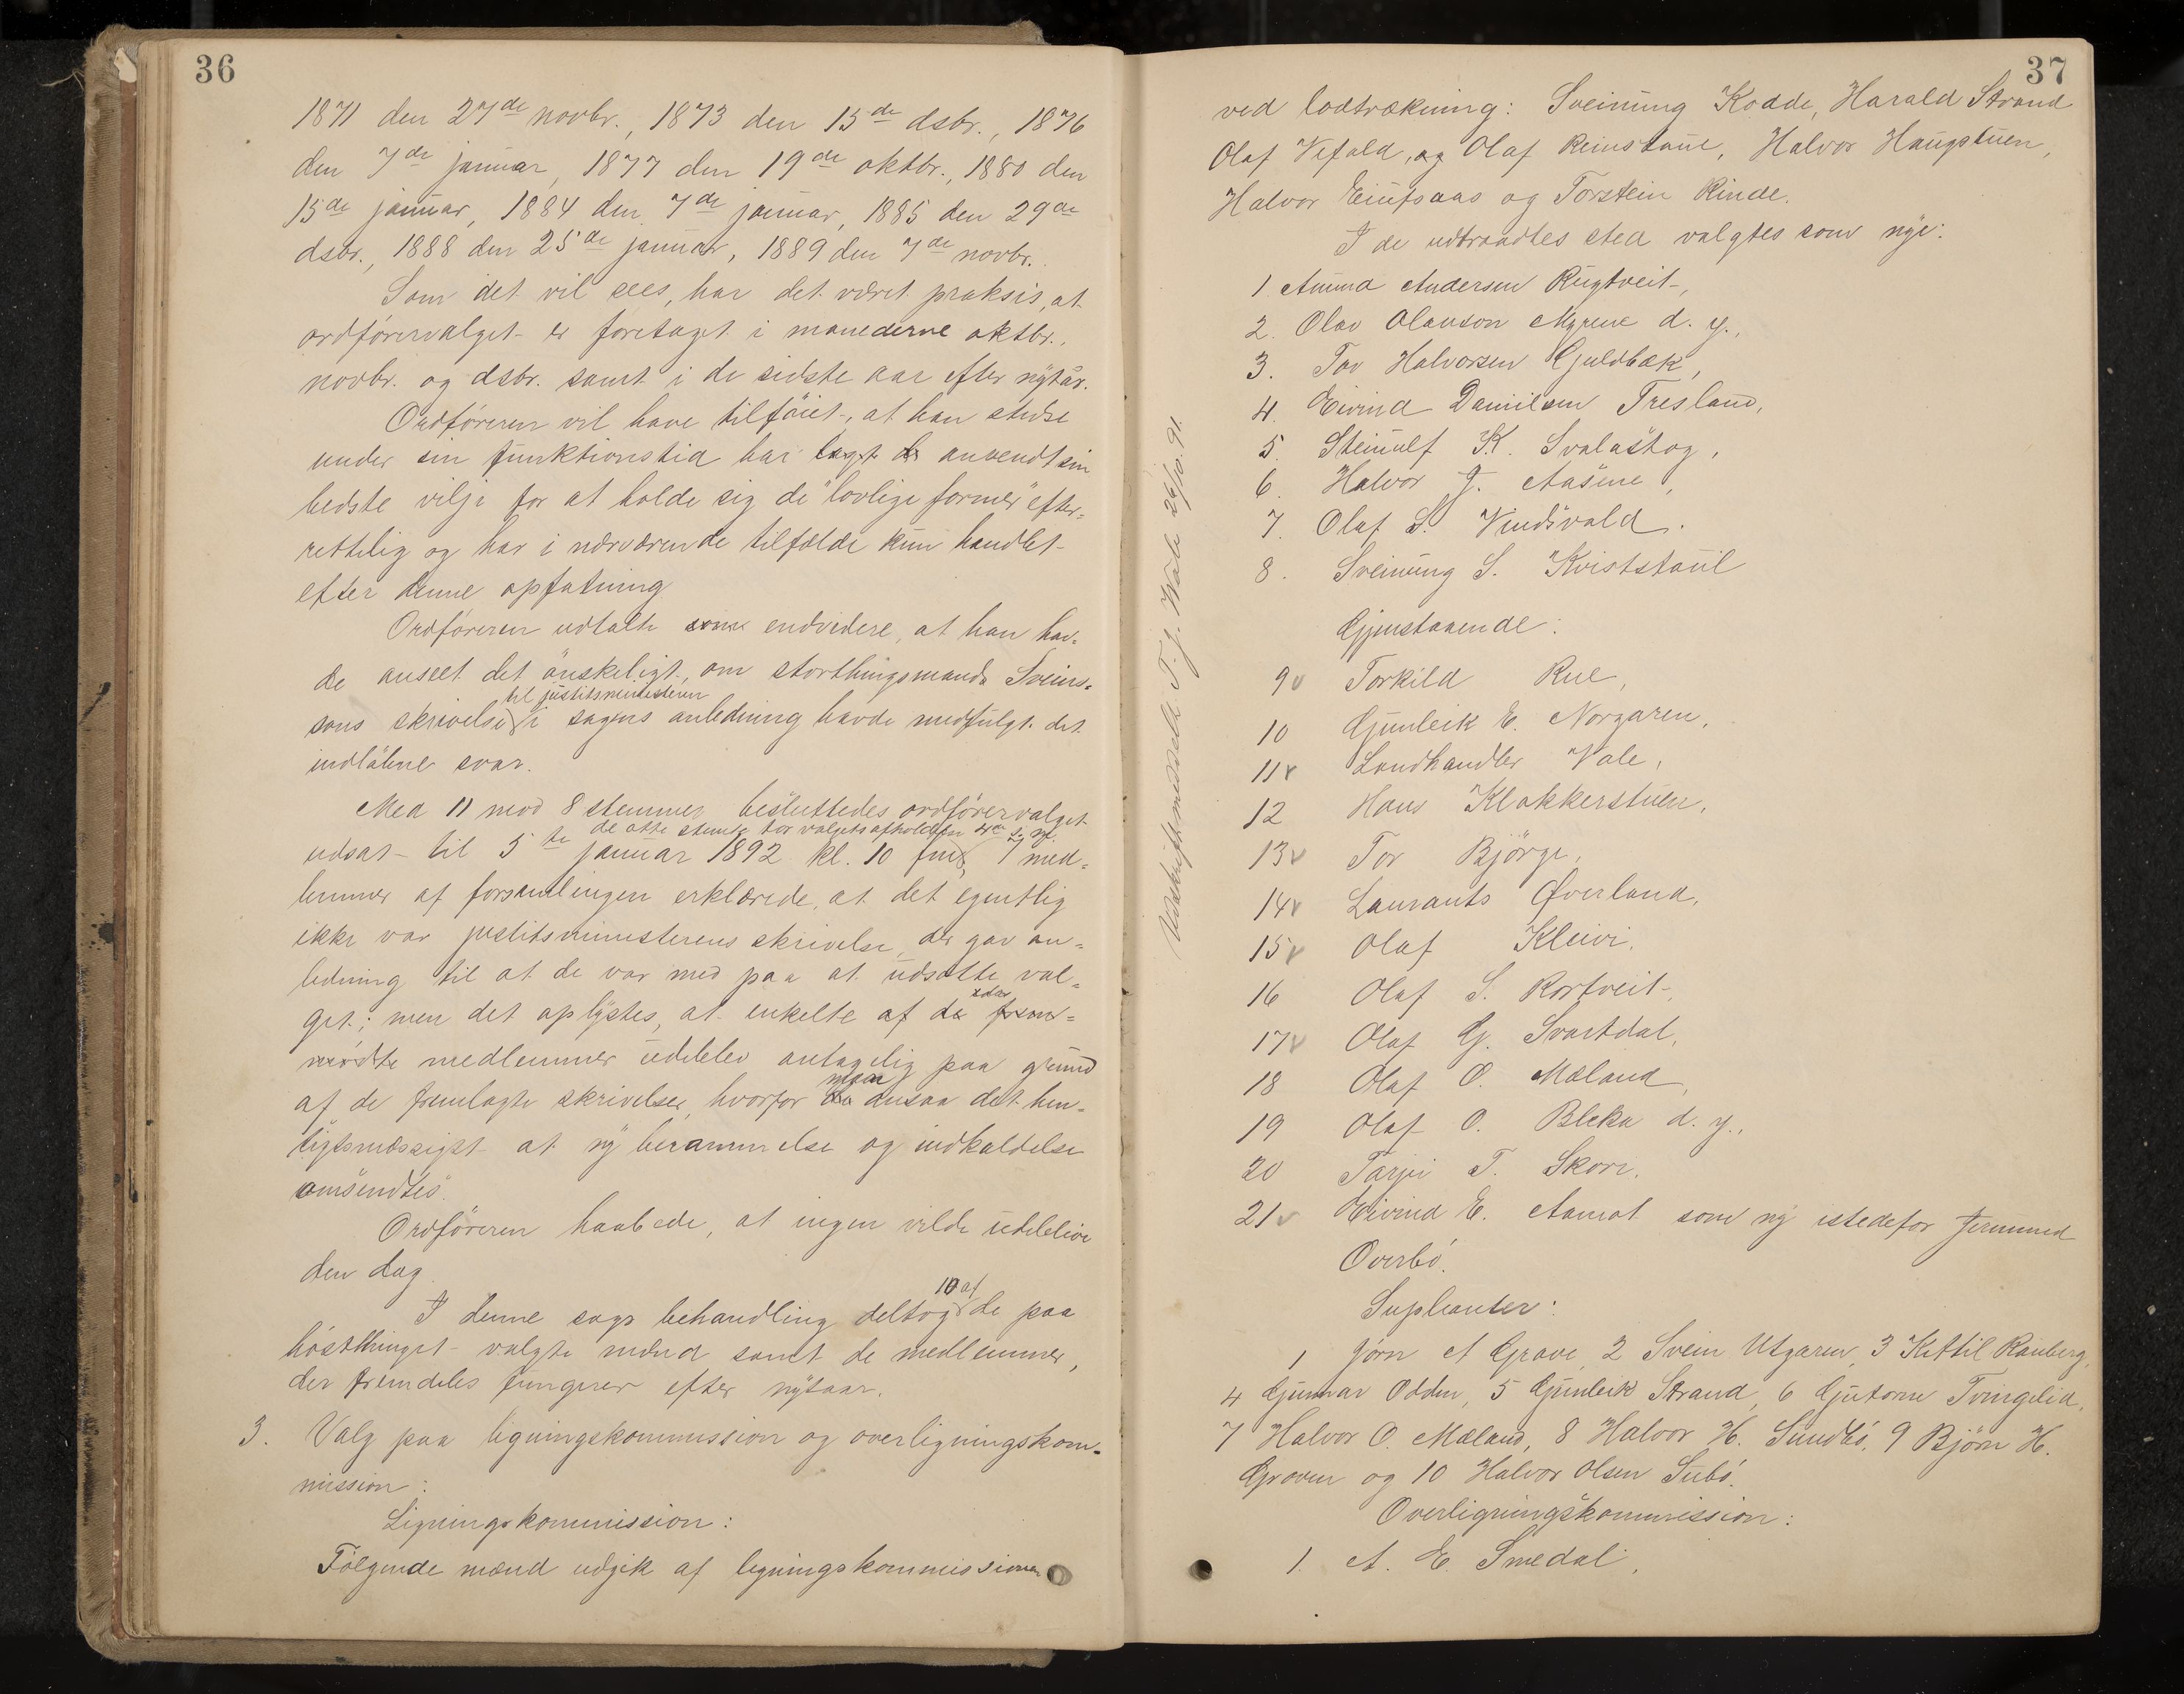 36
1871 den 27de novbr., 1873 den 15de dsbr., 1876
den 7de januar, 1877 den 19de oktbr., 1880 den
15de januar, 1884 den 7de januar, 1885 den 29de
dsbr., 1888 den 25de januar, 1889 den 7de novbr.
Som det vil sees, har det været praksis, at
ordförervalget er foretaget i manederne oktbr.,
novbr. og dsbr. samt i de sidste aar efter nytår.
Ordföreren vil have tilföiet, at han stedse
under sin funktionstid har lagt de anvendt sin
bedste vilje for at holde sig de "lovlige former" efter=
rettelig og har i nærværende tilfælde kun handlet
efter denne opfatning
Ordföreren udtalte some endvidere, at han hav=
de anseet det önskeligt, om storthingsmands Sveins=
til justitsministeren
sons skrivelse i sagens anledning havde medfulgt det
indlöbne svar.
Med 11 mod 8 stemmer besluttedes ordförervalget
de otte stemte for valgets afholdelse 4de
udsat til 5te januar 1892 kl. 10 fm, 7 med=
lemmer af forsamlingen erklærede, at det egentlig
ikke var justitsministerens skrivelse, der gav an=
ledning til at de var med paa at udsætte val=
get; men det oplystes, at enkelte af de frem=
mödte medlemmer udeblev antagelig paa grund
man
af de fremlagte skrivelser, hvorfor de ansaa det hen=
sigtsmæssigst at ny berammelse og indkaldelse
omsendtes.
Ordföreren haabede, at ingen vilde udeblive
den dag
10 af
I denne sags behandling deltog de paa
hösthinget valgte mænd samt de medlemmer,
der fremdeles fungerer efter nytaar.
3. Valg paa ligningskommission og overligningskom=
mission:
Ligningskommission:
Fölgende mænd udgik af ligningskommissionen
37
ved lodtrækning: Sveinung Kodde, Harald Strand
Olaf Vefald, og Olaf Reinstaul, Halvor Haugstuen,
Halvor Einfsaas og Torstein Rinde.
I de udtraadtes sted valgtes som nye:
1. Amund Andersen Rugtveit,
2. Olav Olavson Myrene d. y.,
3. Tov Halvorsen Gjuldbæk,
4. Eivind Danielsen Tresland,
5. Steinulf K. Svalastog,
6. Halvor J. Aasene,
7. Olaf S. Vindsvald.
8. Sveinung S. Kviststaul
Gjenstaaende:
9 v Torkild Rue,
10 Gunleik E. Norgaren,
11 v Landhandler Vale,
12 Hans Klokkerstuen,
13 v Tor Björge,
14 v Laurants Øverland,
15 v Olaf Kleivi,
16 Olaf S. Rortveit,
17 v Olaf G. Svartdal,
18 Olaf O. Mæland,
19 Olaf O. Bleka d. y.,
20 Tarjei T. Skore,
21 v Eivind E. Aamot som ny istedefor Jermund
Overbö.
Suplianter:
1 Jörn A Grave, 2 Svein Utgaren, 3 Kittil Rauberg,
4 Gunnar Odden, 5 Gunleik Strand, 6 Gutorm Tveingelid,
7 Halvor O. Mæland, 8 Halvor H. Sundbö, 9 Björn H.
Groven og 10 Halvor Olsen Subö.
Overligningskommission:
1. A. E. Smedal,
Udskrift meddelt T. J. Wale 26/10.91.